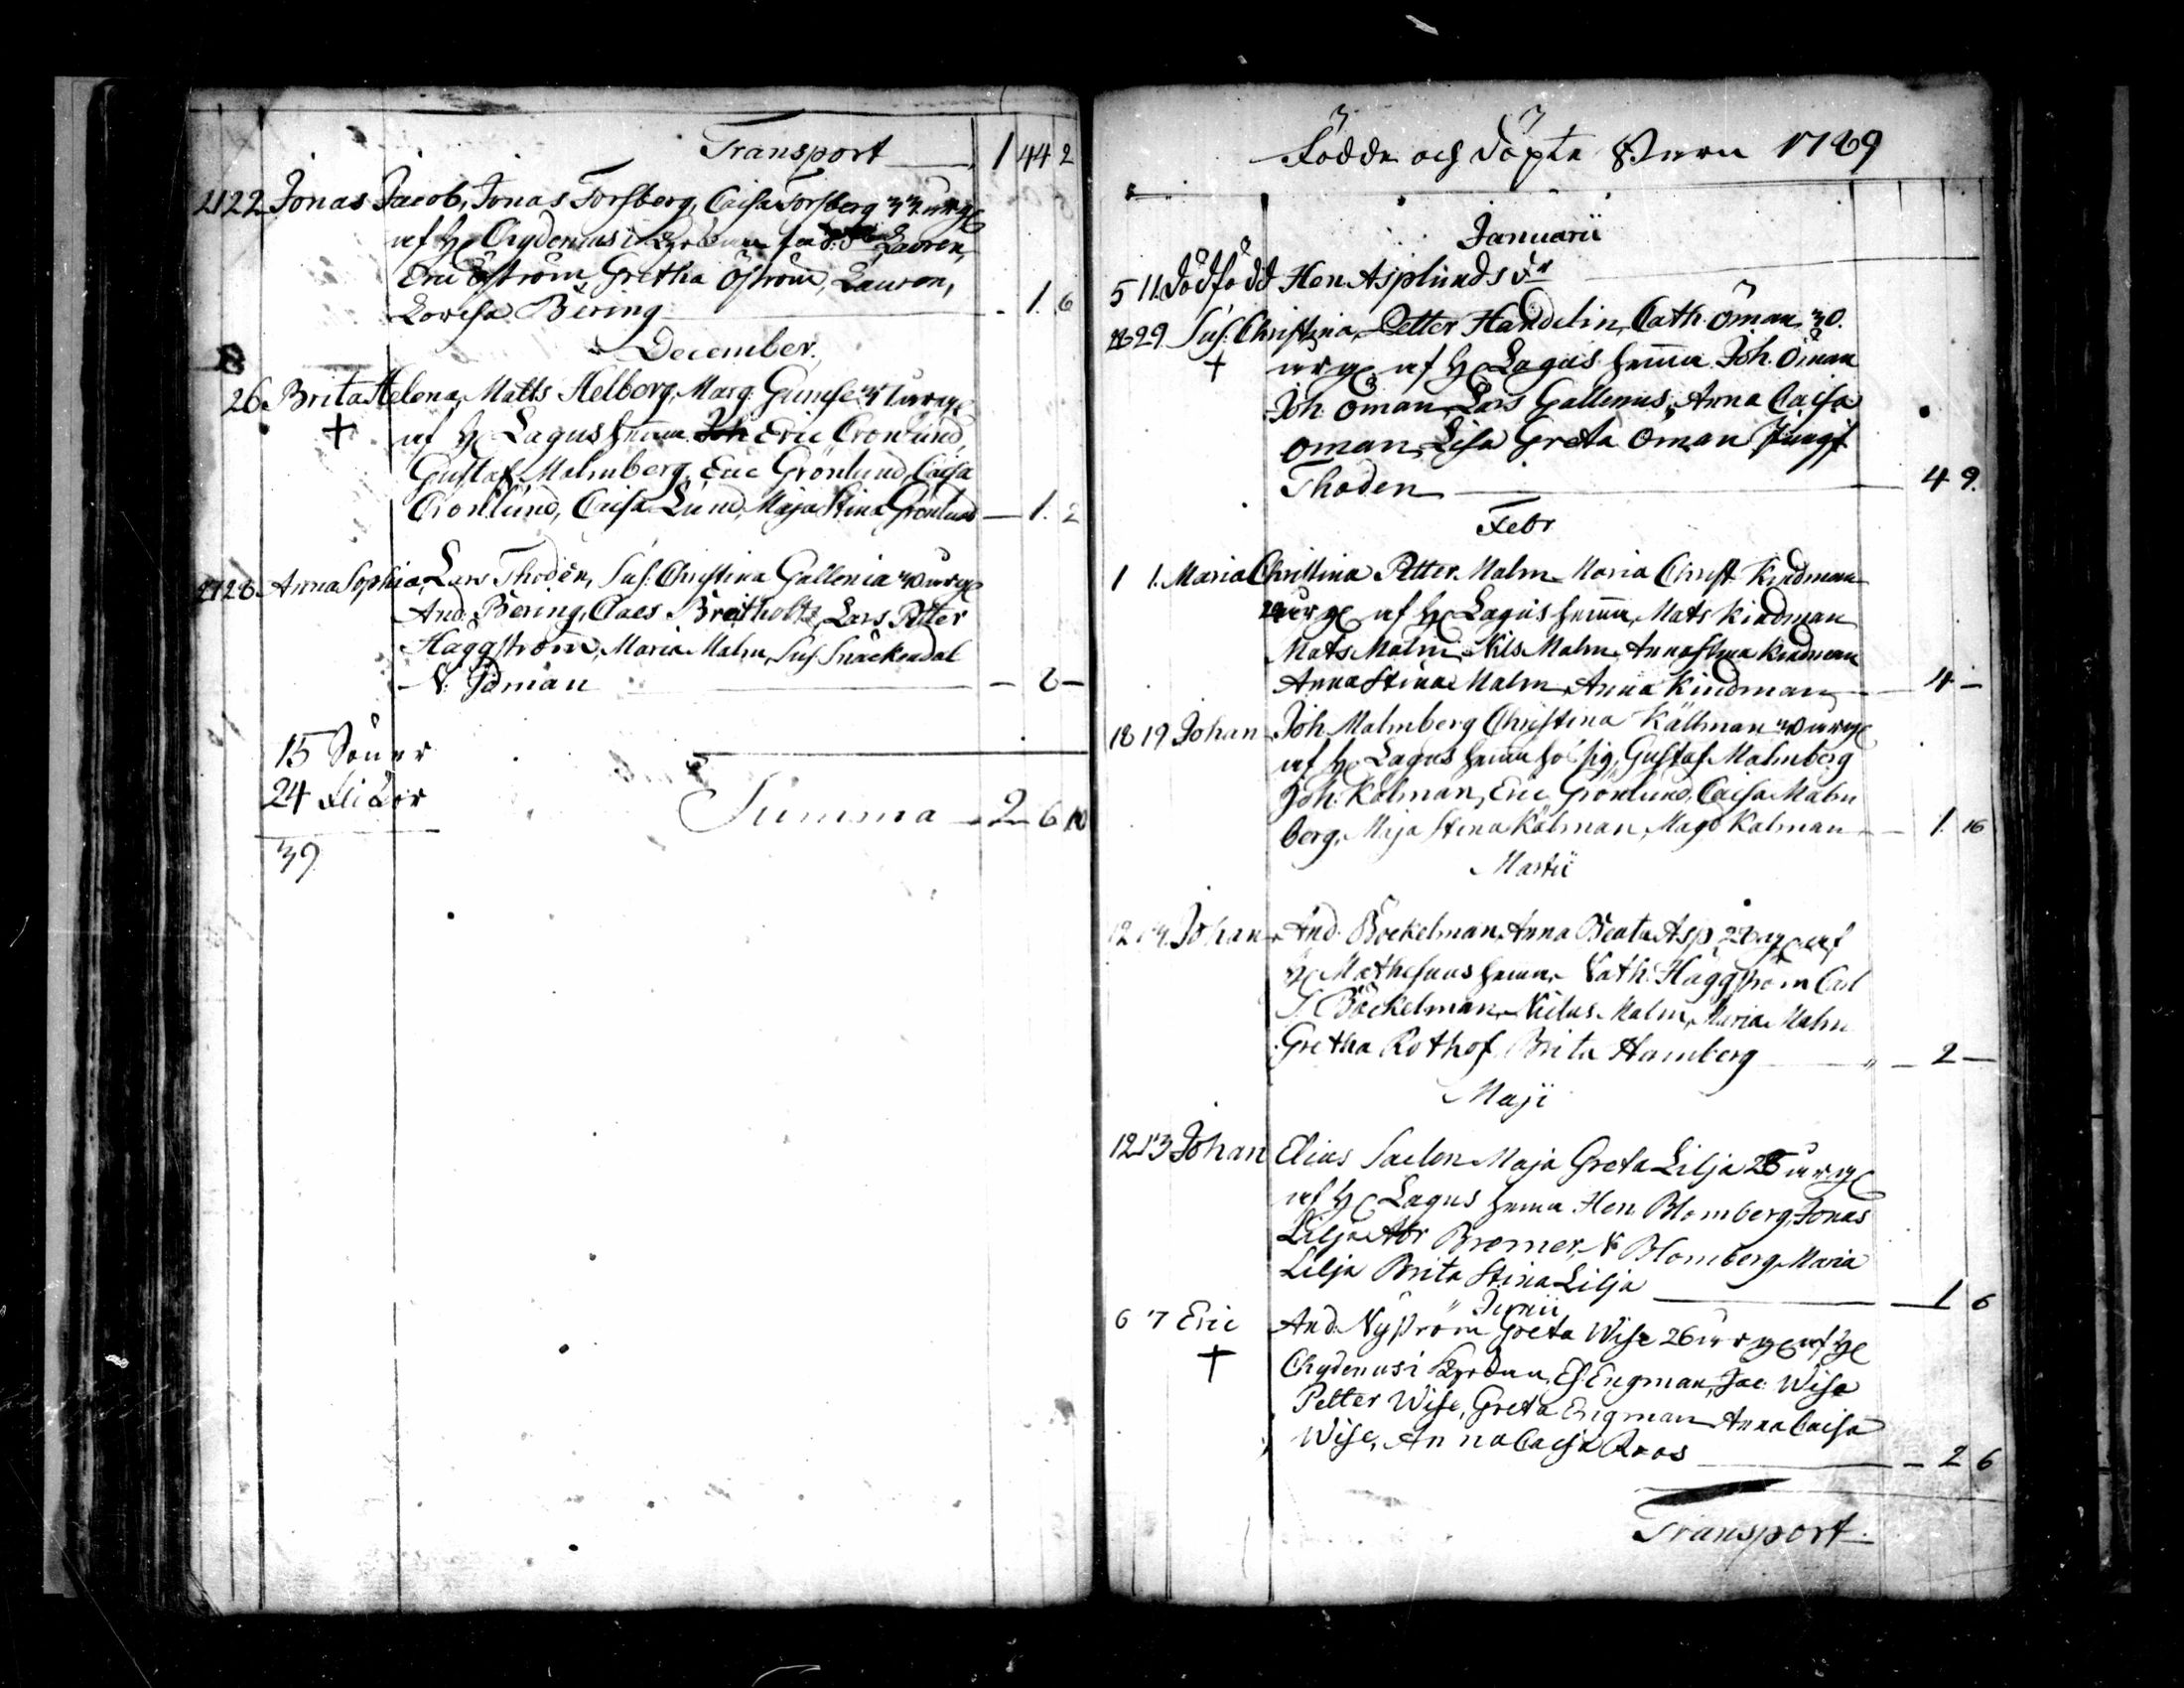 Transport 1 44 2
21 22 Jonas Jacob, Jonas Forsberg, Caisa Forsberg 33 år g
af H Chydenius i Kyrckan Lauren,
Eric Öström, Gretha Öström, Lauren,
Lovisa Bering 1. 6
December.
26. Brita Helena, Matts Helborg, Marg. Gumse 31 år g
+ af H Lagus hema Eric Cronlund,
Gustaf Malmberg, Eric Grönlund, Caisa
Cronlund, Caisa Lund, Maja Stina Grönlund 1. 2
27 28 Anna Sophia, Lars Thodén, Sus. Christina Gallenia 40 år g
And. Bering, Claes Breitholtz, Lars Petter
Häggström, Maria Malm, Sus. Snäckendal
N. Idman 2
15 Söner
24 Flickor
39
Summa 2 6 10
Födde och Döpte Barn 1789
Januarii
5 11. Dödfödd Hen. Asplunds
28 29 Sus. Christina, Petter Handelin, Cath. Öman 30.
+ år g af H Lagus hema Joh. Öman
Joh. Öman, Lars Gallenius, Anna Caisa
Öman, Lisa Greta Öman Jungf
Thoden 4 9.
Febr
1 1. Maria Christina Petter Malm Maria Christ. Kindman
år g af H Lagus hema, Mats Kindman
Mats Malm Nils Malm Anna Stina Kindman
Anna Stina Malm, Anna Kindman 4 -
18 19 Johan Joh. Malmberg Christina Källman 40 år g
af H Lagus hema hos sig, Gustaf Malmberg
Joh. Kälman, Eric Grönlund, Caisa Malm
berg, Maja Stina Kälman, Magd Kalman 1. 16
Martii
12 14. Johan And. Böckelman, Anna Beata Asp 22 år g af
H Mathesius hema, Cath. Häggström Carl
J. Böckelman, Niclas Malm, Maria Malm
Gretha Rothof Brita Hamberg 2 -
Maji
12 13 Johan Elias Saelen Maja Greta Lilja 28 år g
af H Lagus hema Hen. Blomberg, Jonas
Lilja Abr Bremer, N Blomberg, Maria
Lilja Brita Stina Lilja 1 6
Junii
6 7 Eric And. Nyström Greta Wise 26 år g af H
+ Chydenius i Kyrckan, Es. Engman, Jac. Wise
Petter Wise, Greta Engman Anna Caisa
Wise, Anna Caisa Roos 2 6
Transport